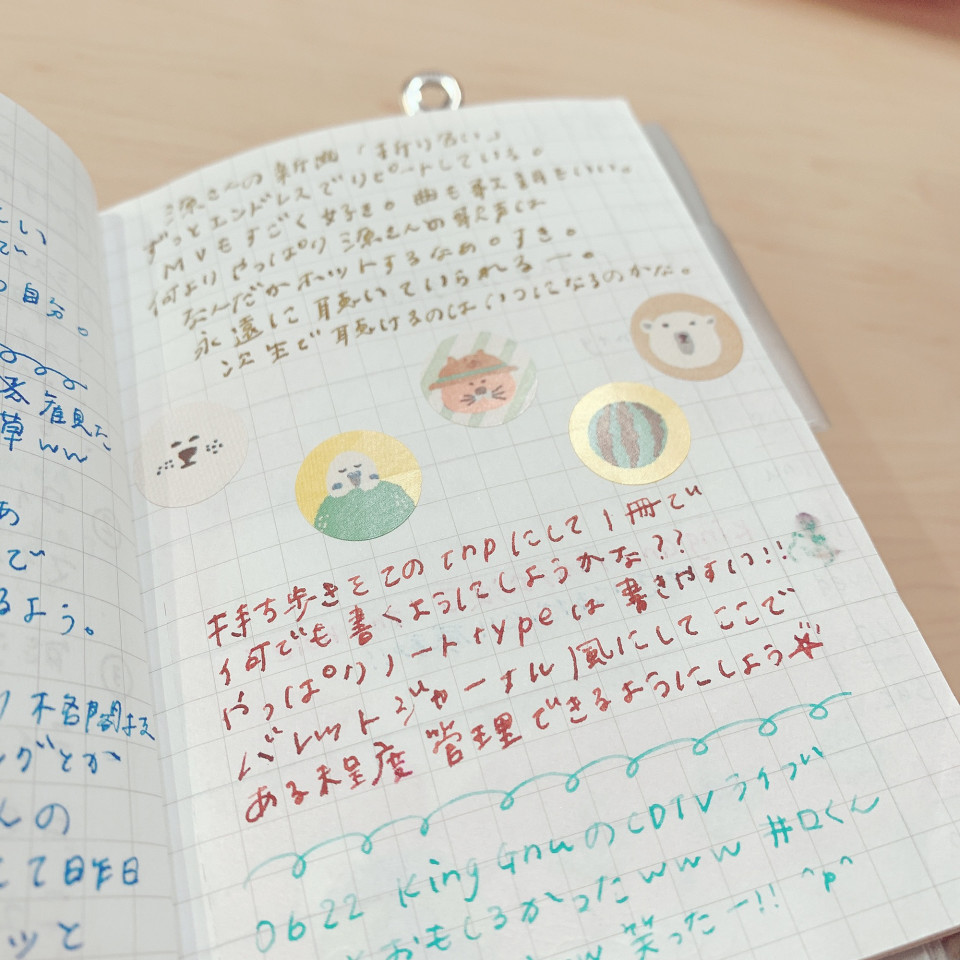 しい
てい
の自分。
草ww
あ
で
るよう。
グとか
んの
て昨日
ッと
源さんの新曲「折り合い」
ずっとエンドレスでリピートしている。
MVもすごく好き。曲も歌詞もいい。
何よりやっぱり源さんの歌声は
なんだかホットするなあ。すき。
永遠に聴いていられるー。
次生で聴けるのはいつになるのかな。
持ち歩きをこのtnpにして1冊でい
何でも書くようにしようかな??
やっぱりノートtypeは書きやすいっ!!
バレットジャーナル風にしてここで
ある程度管理できるようにしよう☆
0622 King GnuのCDTVライブい
おもしろかったwww 井口くん
w 笑ったー!! ^p^